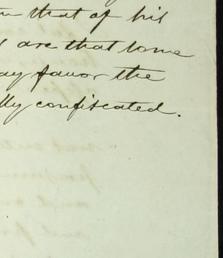 that of his
are that some
favor the
confiscated.